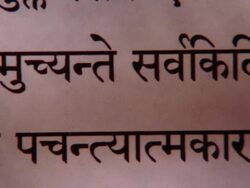 मुच्यन्ते सर्वकि
पचन्त्यात्मकार